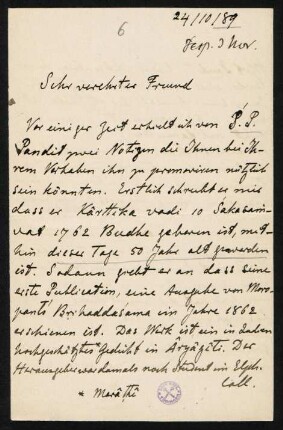 24/10/89
resp. 3 Nov.
6
Sehr verehrter Freund
Vor einiger Zeit erhielt ich von Ṡ. P.
Pandit zwei Notizen die Ihnen bei Ih-
rem Vorhaben ihn zu promoviren nützlich
sein könnten. Erstlich schreibt er mir
dass er Kārttika vadi 10 Sakasaṃ-
vat 1762 Budhe geboren ist, mit-
hin dieser Tage 50 Jahr alt geworden
ist. Sodann giebt er an dass seine
erste Publication, eine Ausgabe von Moro-
pants' Bṛhaddaśama im Jahre 1862
erschienen ist. Das Werk ist ein in
hochgeschätztes Gedicht in Āryāgīti. Der
Herausgeber war damals noch Student im Elph.
Coll.
* Marāṭhī